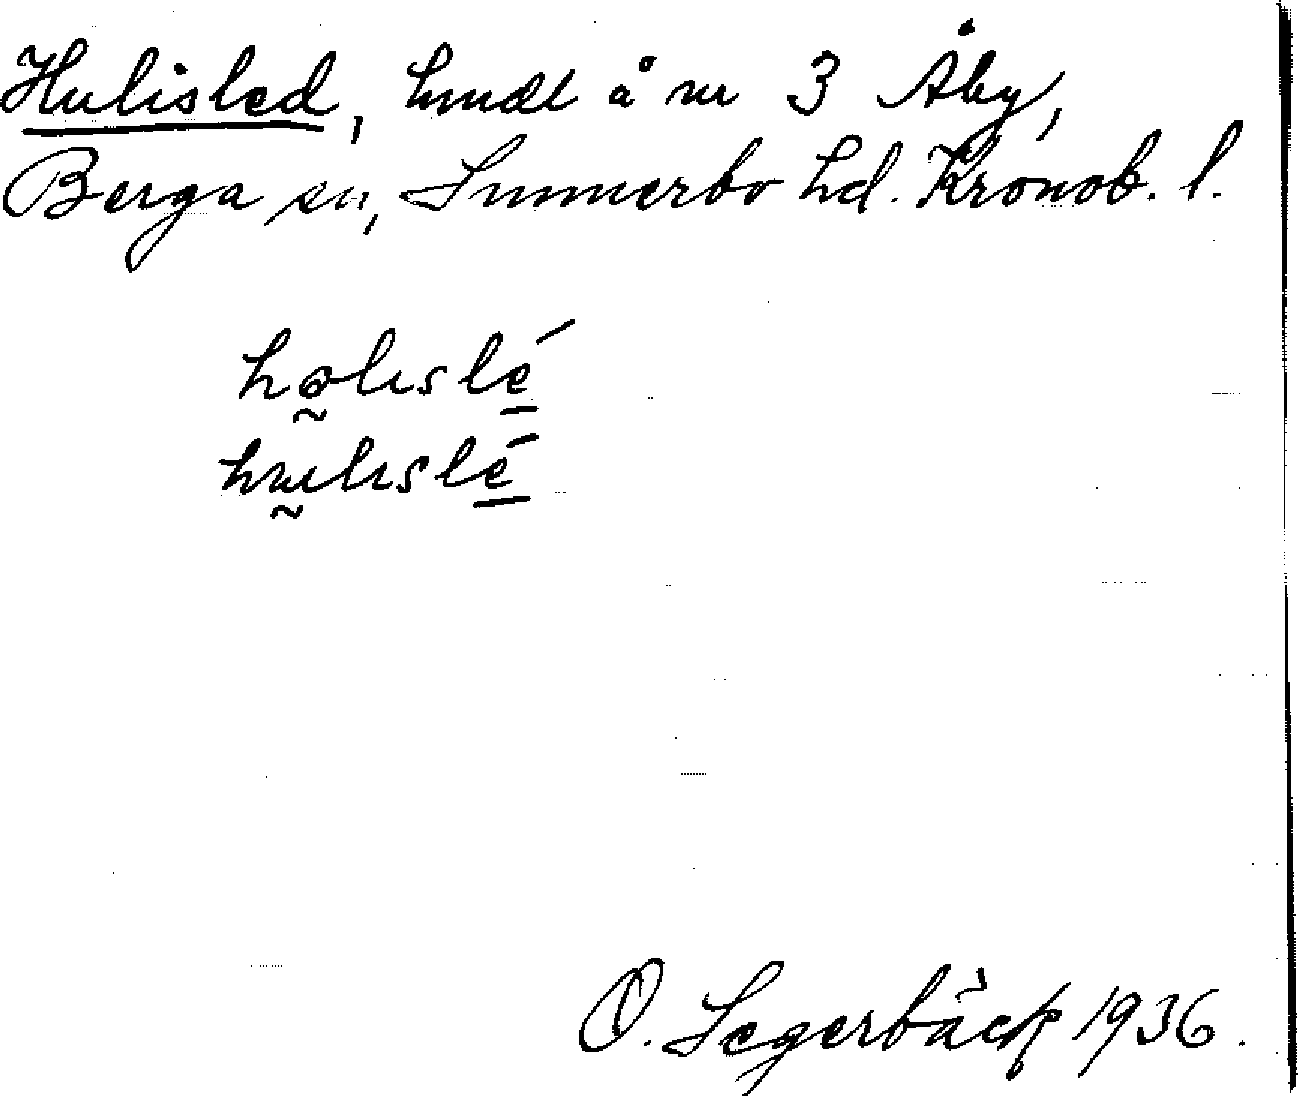 Hulisled, hmdl å nr 3 Åby,
Berga sn, Sunnerbo hd. Kronob. l.
hølıslé
hʉlıslé
O. Segerbäck 1936.